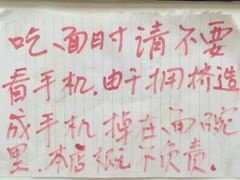 吃面时请不要
看手机.由于拥挤造
成手机掉在面碗
里.本店概不负责.